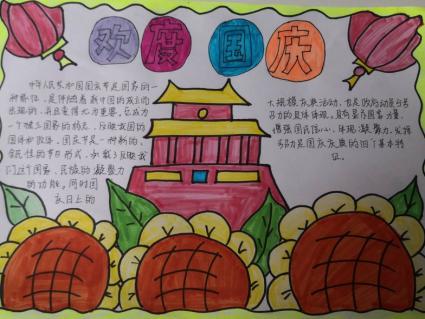 欢度国庆
中华人民共和国国庆节是国家的一
种象征，是伴随着新中国的成立而
出现的，并且变得尤为重要。它成为
一个独立国家的标志，反映我国的
国体和政体。国庆节是一种新的、
全民性的节日形式，承载了反映我
们这个国家、民族的凝聚力
的功能。同时国
庆日上的
大规模庆典活动，也是政府动员与号
召力的具体体现。具有显示国家力量、
增强国民信心，体现凝聚力，发挥
号召力是国庆庆典的四个基本特
征。